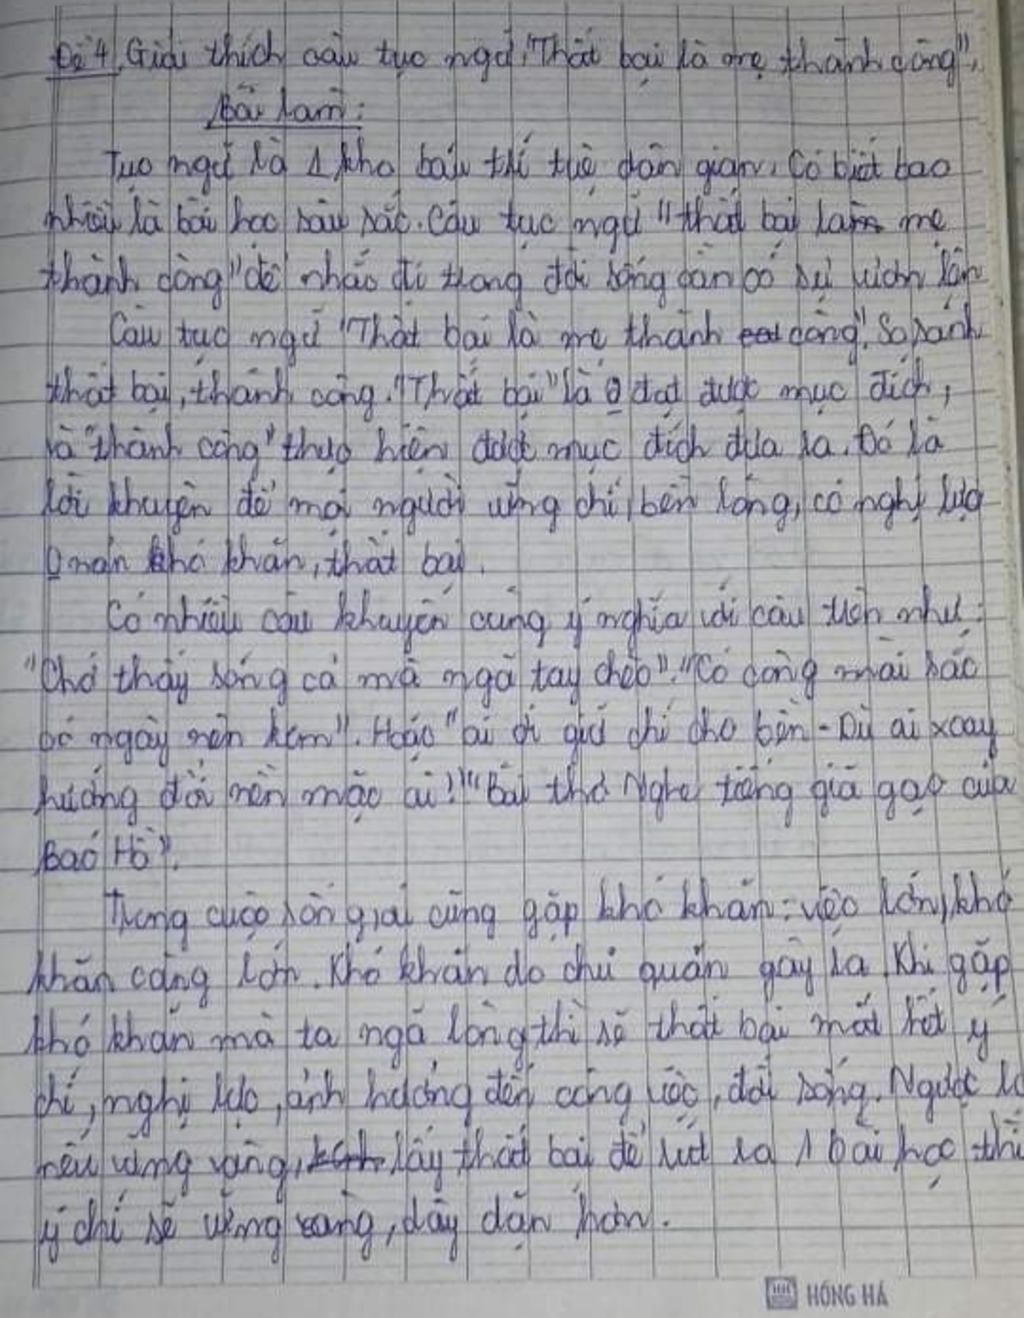 Đề 4, Giải thích câu tục ngữ "Thất bại là mẹ thành công",
Bài làm:
Tục ngữ là 1 kho báu trí tuệ dân gian. Có biết bao
nhiêu là bài học sâu sắc. Câu tục ngữ "thất bại làm mẹ
thành công" để nhắc đi trong đời sống cần có sự lớn
Câu tục ngữ "Thất bại là mẹ thành công". So sánh
thất bại, thành công. "Thất bại" là 0 đạt được mục đích,
là "thành công" thực hiện được mục đích đưa ra. Đó là
lời khuyên để mọi người vững chí, bền lòng, có nghị lực
0 nản khó khăn, thất bại.
Có nhiều câu khuyên cùng ý nghĩa với câu trên như:
"Chớ thấy sóng cả mà ngã tay chèo". "Có công mài sắc
có ngày nên kim". Hoặc "ai ơi giữ chí cho bền - Dù ai xoay
hướng đổi nền mặc ai!" "Bài thơ Nghe tiếng giã gạo của
Bác Hồ".
Trong cuộc sống ai cũng gặp khó khăn: việc lớn, khó
khăn càng lớn. Khó khăn do chủ quan gây ra. Khi gặp
khó khăn mà ta ngã lòng thì sẽ thất bại mất hết ý
chí, nghị lực, ảnh hưởng đến công việc, đời sống. Ngược
nếu vững vàng, lấy thất bại để rút ra 1 bài học thì
ý chí sẽ vững vàng, dày dặn hơn.
HỒNG HÀ